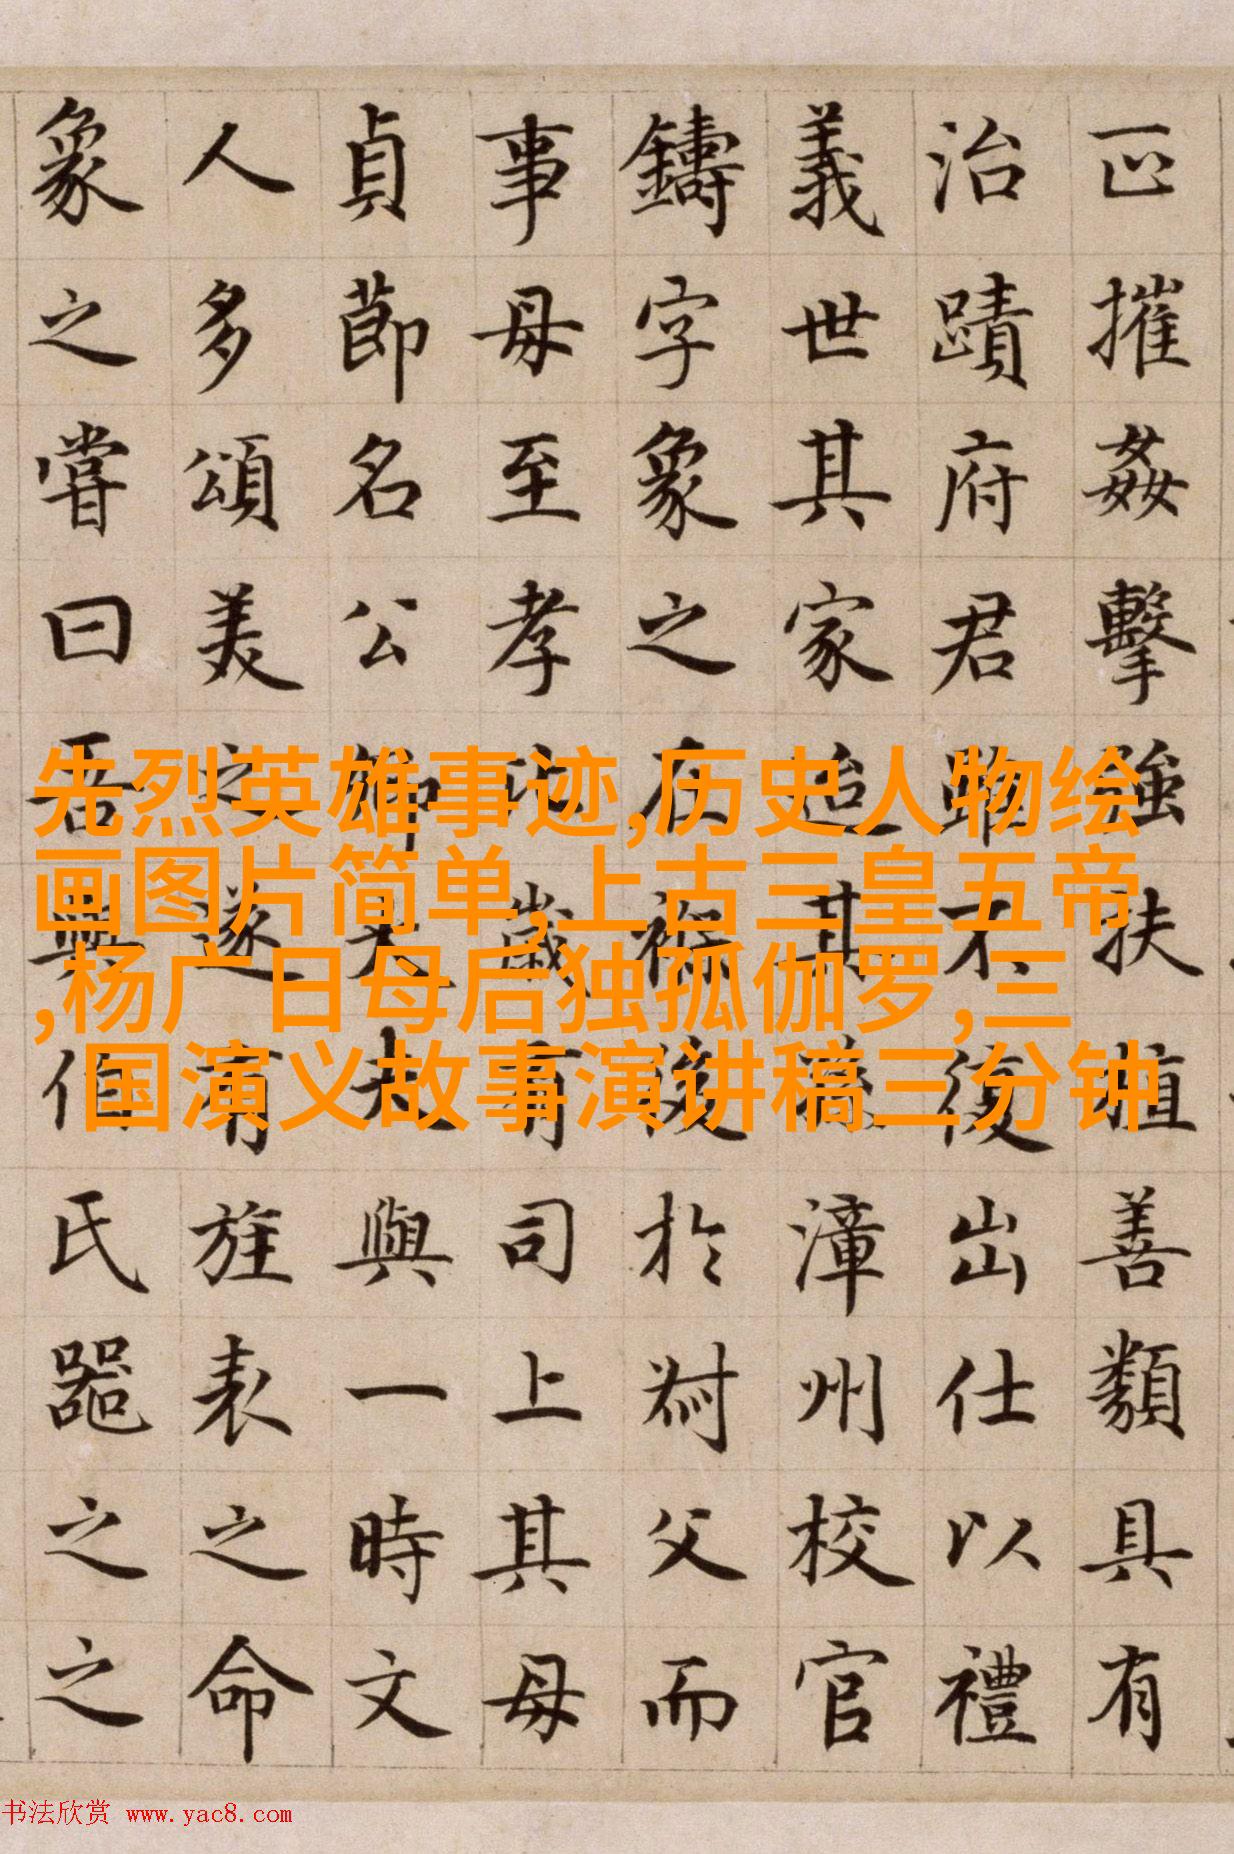 摧姦擊強扶植善類具有
治蹟府君雖不復出仕以禮
義世其家迨其漳州校官
鑄字象之在褓於父而
事母至孝比歲有司上其母
貞節名公卿大夫與一時文
人多頌美之遂有旌表之命
象之嘗曰吾與伯氏器之之
先烈英雄事迹,历史人物绘
画图片简单,上古三皇五帝
,杨广日母后独孤伽罗,三
国演义故事演讲稿三分钟
书法欣赏 www.yac8.com